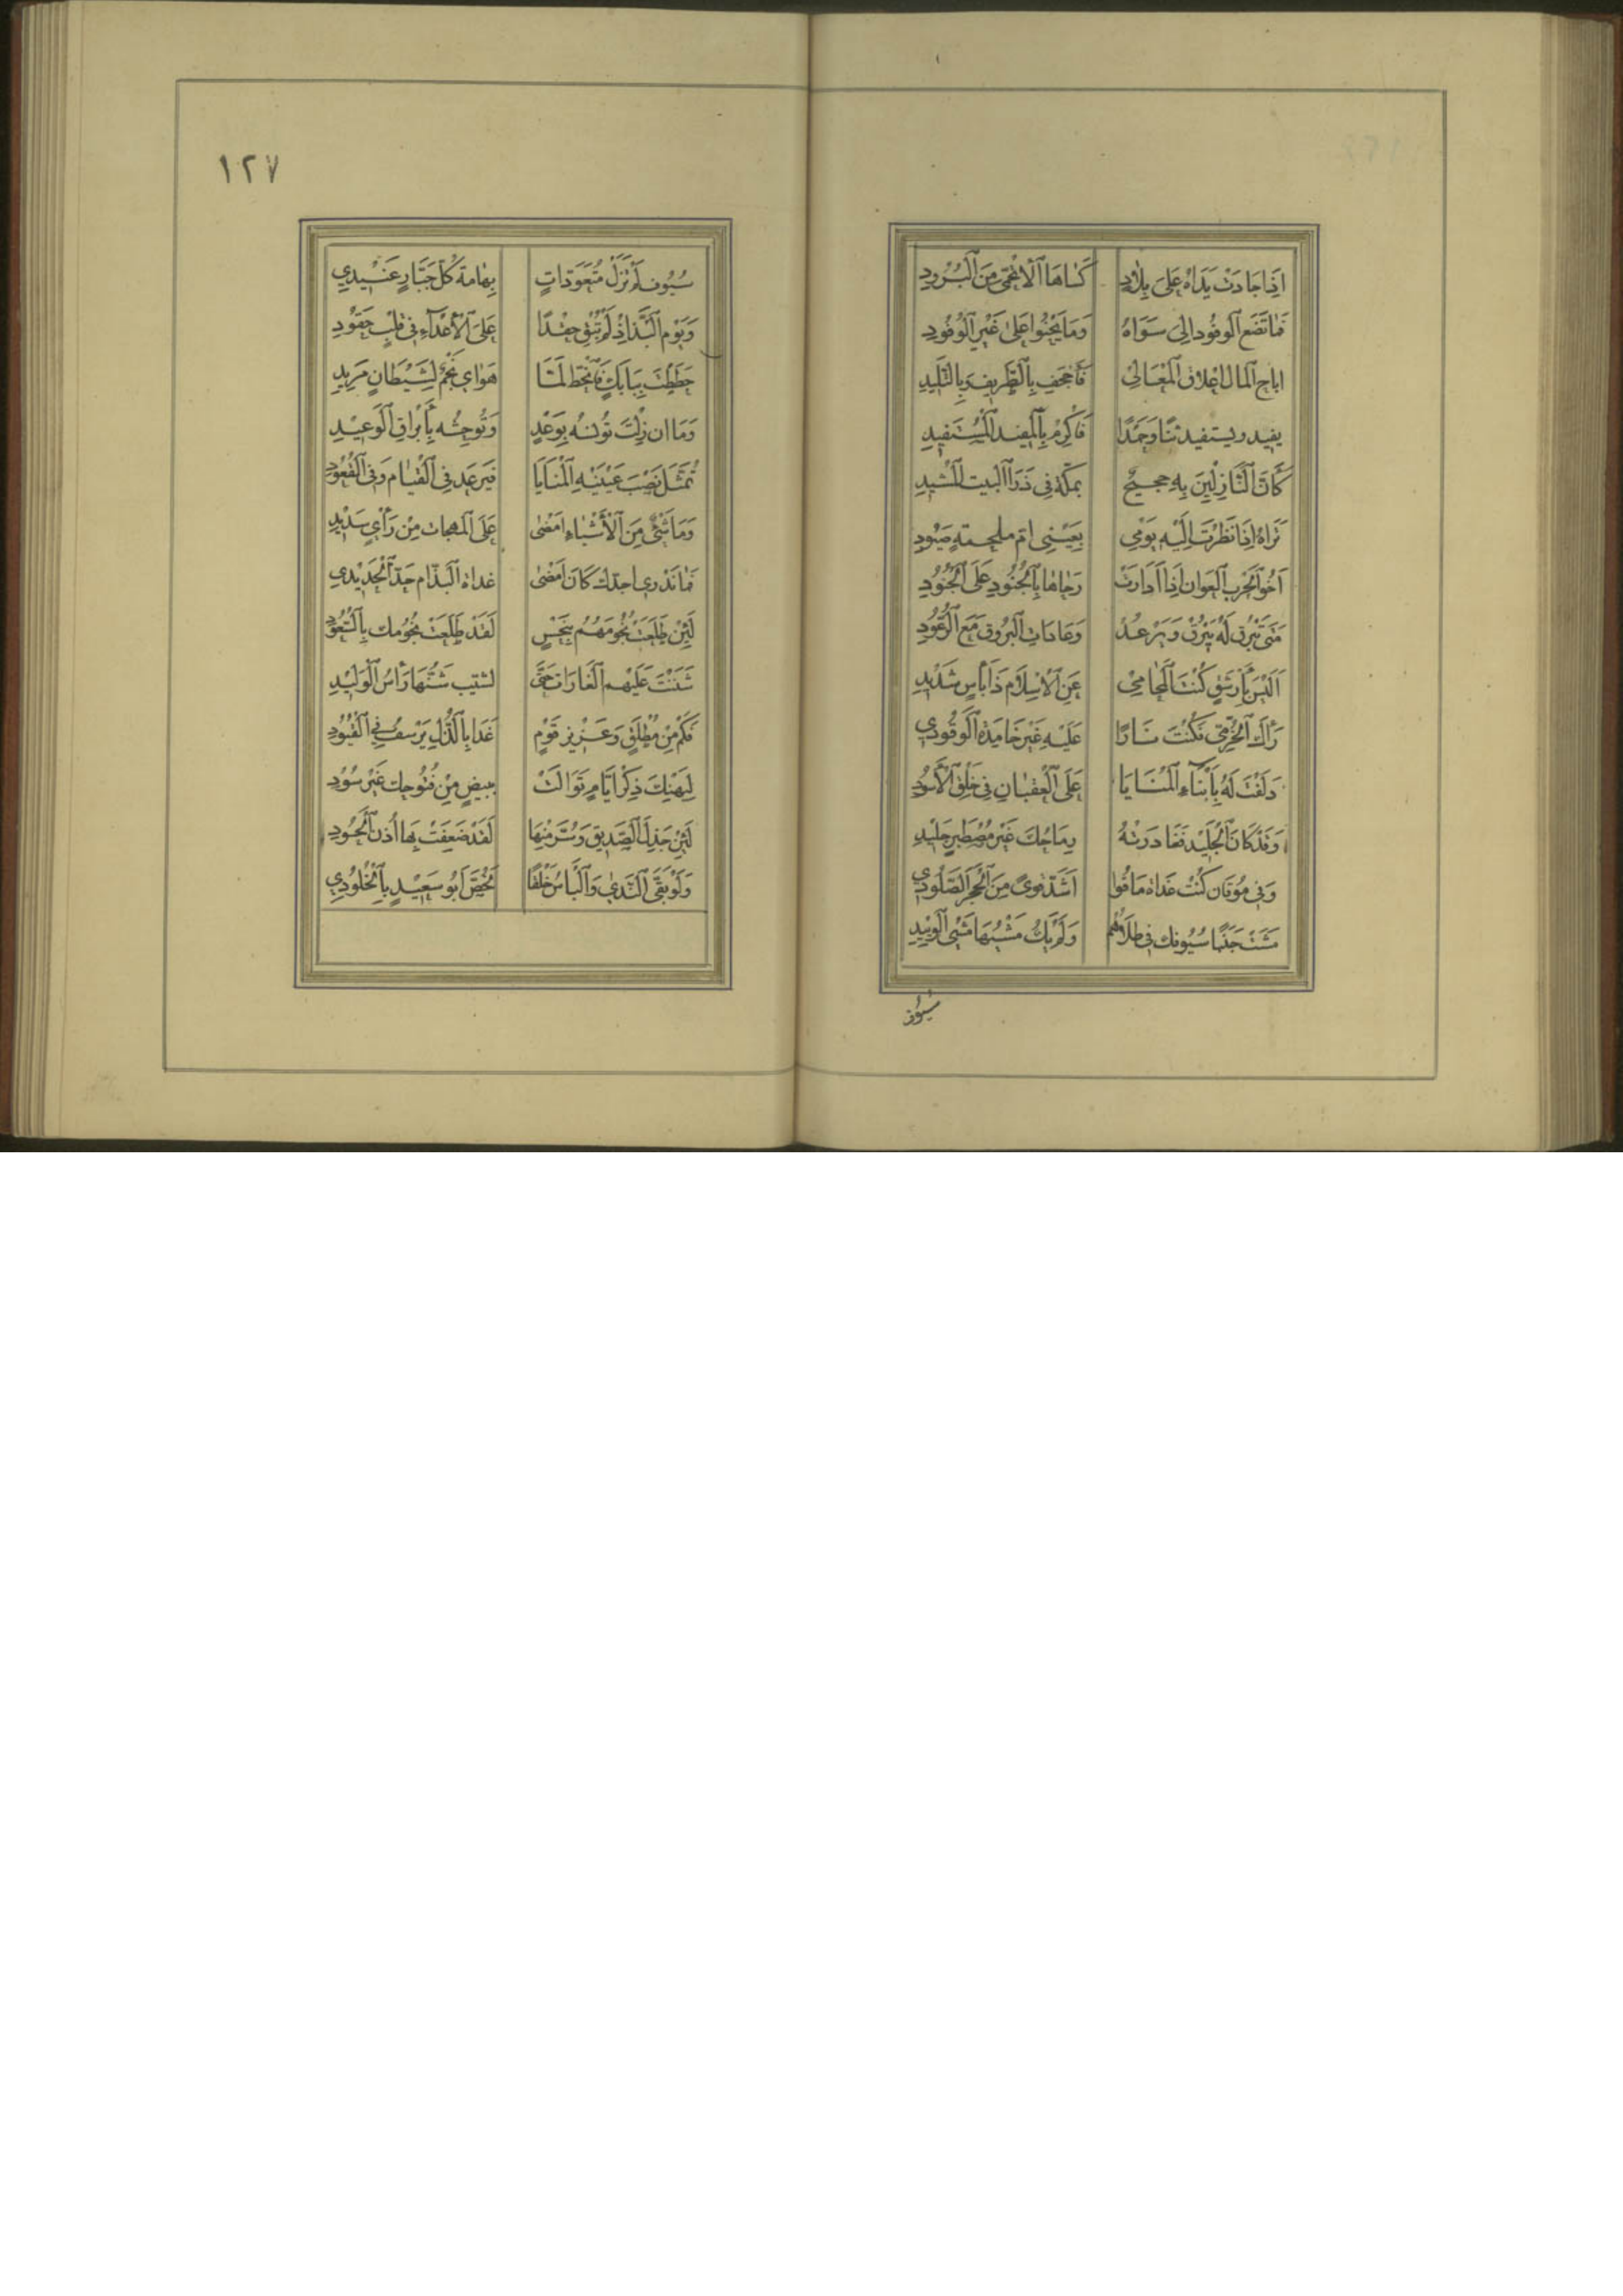 اِذَا جَادَتْ يَدَاهُ عَلَى بِلَادٍ كَسَاهَا الْاَتْحَمِّى مِنَ الْبُرُودِ
فَمَا تَضَع الوفُود اِلى سَوَاهُ وَمَا يَحْنُوا عَلى غَيْرِ الْوُفُودِ
اباح المال اعلاق المَعَالى فَاَجْحَف بِالطَّرِيفِ وَبِالتَّلِيدِ
يفيد ويستفيد ثنًا وَحَمْدًا فَاَكْرِمْ بِالْمفيد الْمُسْتَفِيدِ
كَاَنَّ النَّازِلِينَ بِهِ حجيج بمكّة فِى ذَرَا البيت المشيدِ
تَرَاهُ اِذَا نَظَرْتَ اِلَيْهِ يَوْمِى بِعَيْنِى امّ ملحمةٍ صَيُودِ
اَخُو الحَرْب العَوان اِذَا اَدَارَتْ رَحَاهَا بِالجُنُودِ عَلَى الجُنُودِ
مَتى تَبْرُق لَهُ يَبْرُقْ وَيَرْعُدْ وَعَادَات البُرُوق مَعَ الرُّعُودِ
اَلَيْسَ بِأَرْشَقٍ كُنْتَ المُحَامِى عَنِ الْاِسْلَام ذَا بَأْسٍ شَدِيدِ
رَآكَ الخُرَّمِى فَكُنْتَ نَارًا عَلَيْهِ غَيْرَ خَامِدَة الْوَقُودِي
دَلَفْتَ لَهُ بِاَبْنَاءِ الْمَنَايَا عَلَى الْعِقْبَان فِى خَلْقِ الْاُسُودِ
وَقَدْ كَانَ الجَلِيْد فَغَادَرَتْهُ رِمَاحُكَ غَيْرَ مُصْطَبِرٍ جَلِيْدِ
وَفِى مُوقَان كُنْتَ غَدَاة مَاقُوا اَشَدّ قُوىً مِنَ الْحَجَرِ الصَّلُودِي
مَشَتْ خَبَبًا سُيُوفك فِى طلَاهُم وَلَمْ يَكُ مَشْيُهَا مَشْىَ الْوَئِيدِ
سُيُوف
١٢٧
سُيُوف لَمْ تَزَلْ مُتَعَوِّدَاتٍ بِهَامَة كُلّ جَبَّارٍ عَنِيْدِي
وَيَوْم الْبَذّ اِذْ لَمْ تُبْقِ حِقْدًا عَلَى الْاَعْدَآءِ فى قَلْبٍ حَقُودِ
حَطَطْتَ بِبَابَكٍ فَانْحَطّ لَمَّا هَوَاى نَجْم لِشَيْطَانٍ مَرِيدِ
وَمَا ان زِلْتَ تُؤْنِسُه بِوَعْدٍ وَتُوحِشُه بِأَبْرَاقِ الْوَعِيْدِ
تُمَثَّلَ نَصْبَ عَيْنَيْهِ الْمَنَايَا فَيَرْعَد فِى الْقِيَام وَفِى الْقُعُودِ
وَمَا شَىْءٌ مِنَ الْاَشْيَاءِ اَمْضَى عَلَى المُهجَات مِنْ رَأْىٍ سَدِيْدِ
فَمَا نَدْرِى احدّك كَانَ اَمْضَى غداة الْبَذّ ام حَدّ الْحَدِيْدِي
لَئِنْ طَلَعَتْ نُجُومَهُمُ بِنَحْسٍ لَقَدْ طَلَعَتْ نُجُومك بِالسُّعُودِ
شَنَنْتَ عَلَيْهِم الْغَارَات حَتَّى لشيّب شَنُّهَا رَأْسُ الْوَلِيْدِ
فَكَمْ مِنْ مُطْلَقٍ وَعَزِيزِ قَوْمٍ غَدَا بِالذُّلِّ يَرْسفُ فِي الْقُيُودِ
لِيَهْنِكَ ذِكْرُ اَيَّامٍ تَوَالَتْ ببيضٍ مِنْ فُتُوحِك غَيْرِ سُوْدِ
لَئِنْ جَذِلَ الصَّدِيق وَسُرَّ مِنْهَا لَقَدْ ضَعِفَتْ بِهَا اُذن الْحَسُودِ
وَلَوْ بَقَّى النَّدىٰ وَالْبَاْسُ خَلْقًا لَخُصَّ اَبُو سَعِيْدٍ بِالْخُلُودِي